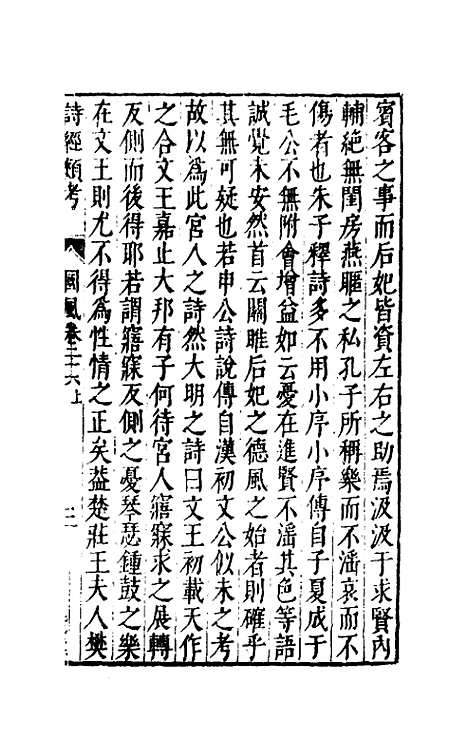 賓客之事而后妃皆資左右之助焉汲汲于求賢內
輔絕無閨房燕䁥之私孔子所稱樂而不淫哀而不
傷者也朱子釋詩多不用小序小序傳自子夏成于
毛公不無附會增益如云憂在進賢不淫其色等語
誠覺未安然首云關雎后妃之德風之始者則確乎
其無可疑也若申公詩說傳自漢初文公似未之考
故以爲此宮人之詩然大明之詩曰文王初載天作
之合文王嘉止大邦有子何待宮人寤寐求之展轉
反側而後得耶若謂寤寐反側之憂琴瑟鍾鼓之樂
在文王則尤不得為性情之正矣葢楚莊王夫人樊
詩經類考 國風卷二十六上 二